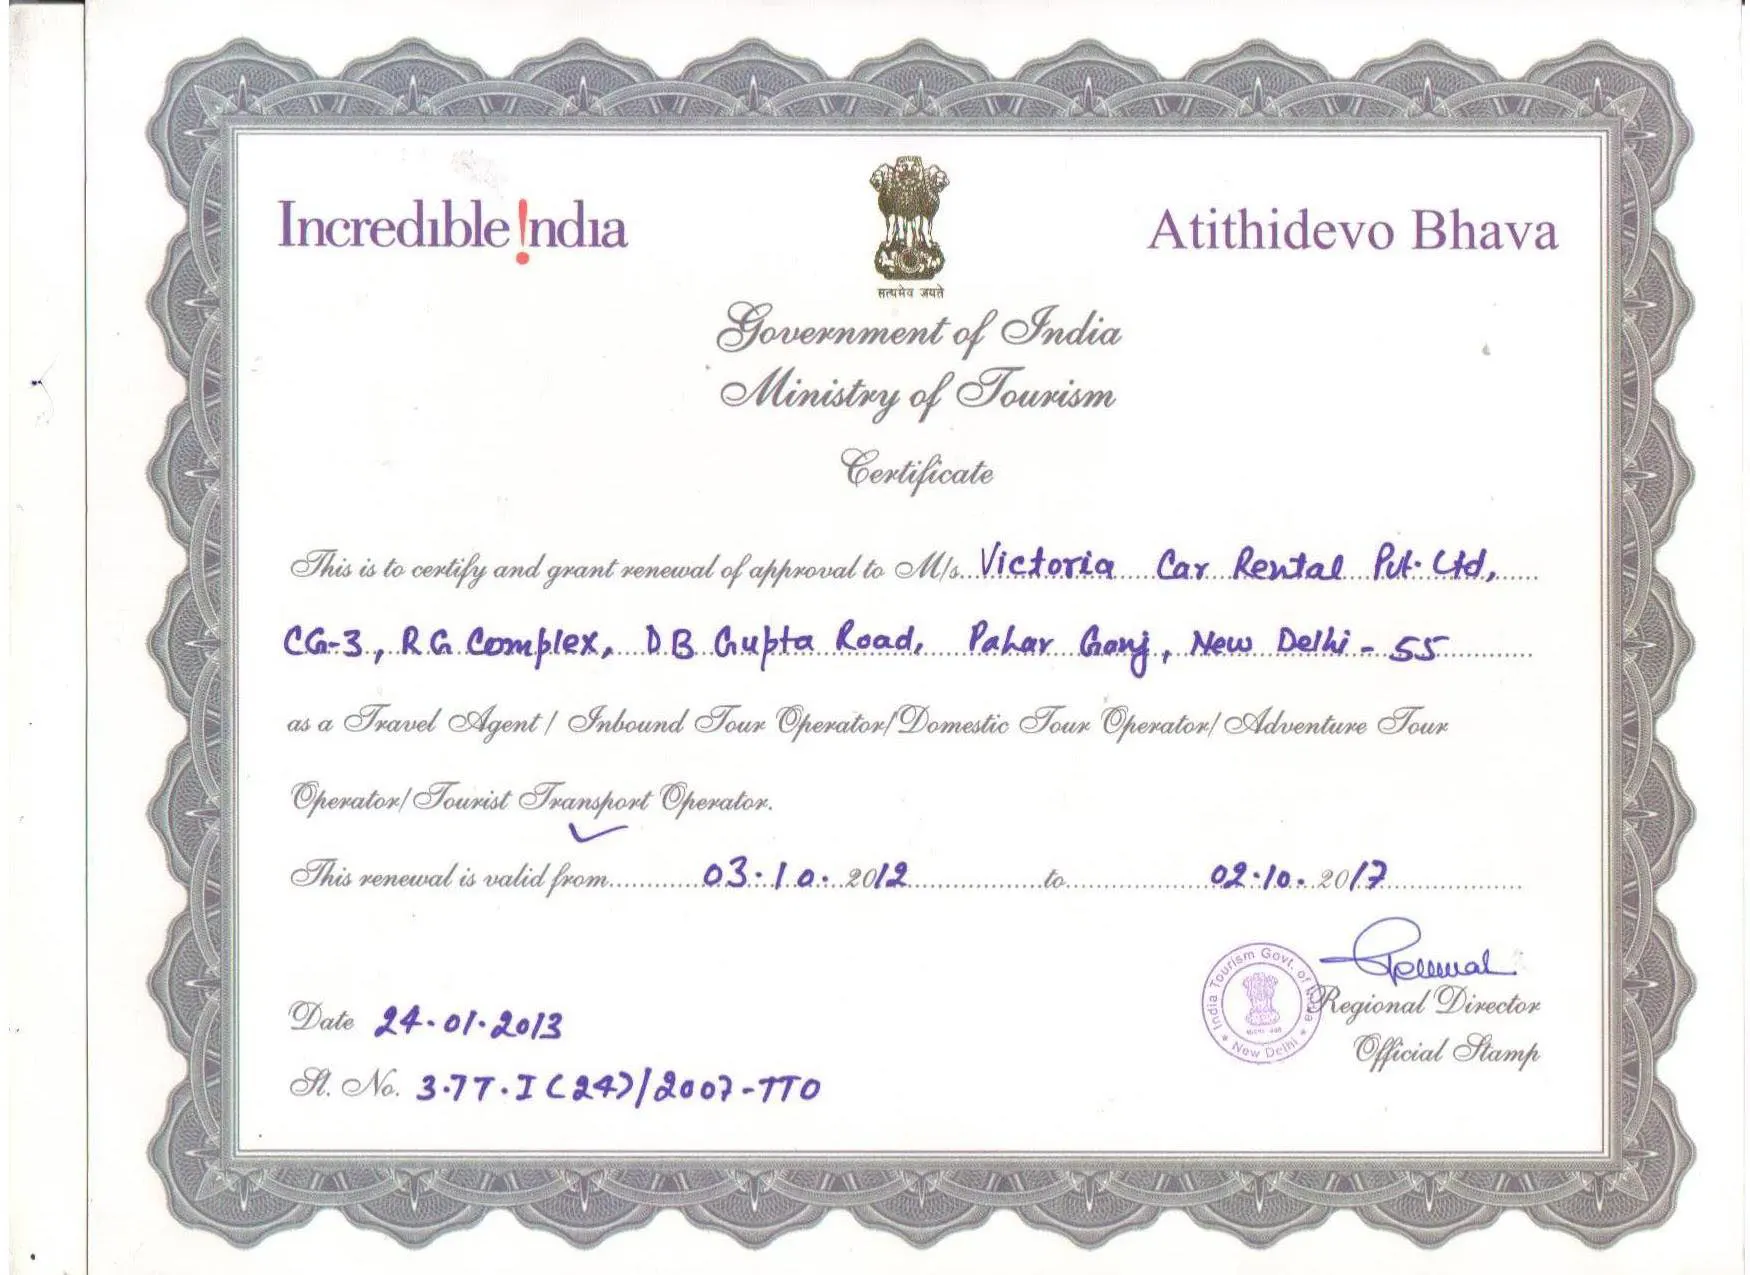 Incredıble !ndıa
Atithidevo Bhava
सत्यमेव जयते
Government of India
Ministry of Tourism
Certificate
This is to certify and grant renewal of approval to M/s. Victoria Car Rental Pvt. Ltd,
CG-3, RG Complex, DB Gupta Road, Pahar Ganj, New Delhi - 55
as a Travel Agent / Inbound Tour Operator/Domestic Tour Operator/ Adventure Tour
Operator/ Tourist Transport Operator.
This renewal is valid from 03.10.2012 to 02.10.2017
India Tourism Govt. of India
* New Delhi *
Regional Director
Date 24.01.2013
Official Stamp
Sl. No. 3-TT.I(24)/2007-TTO